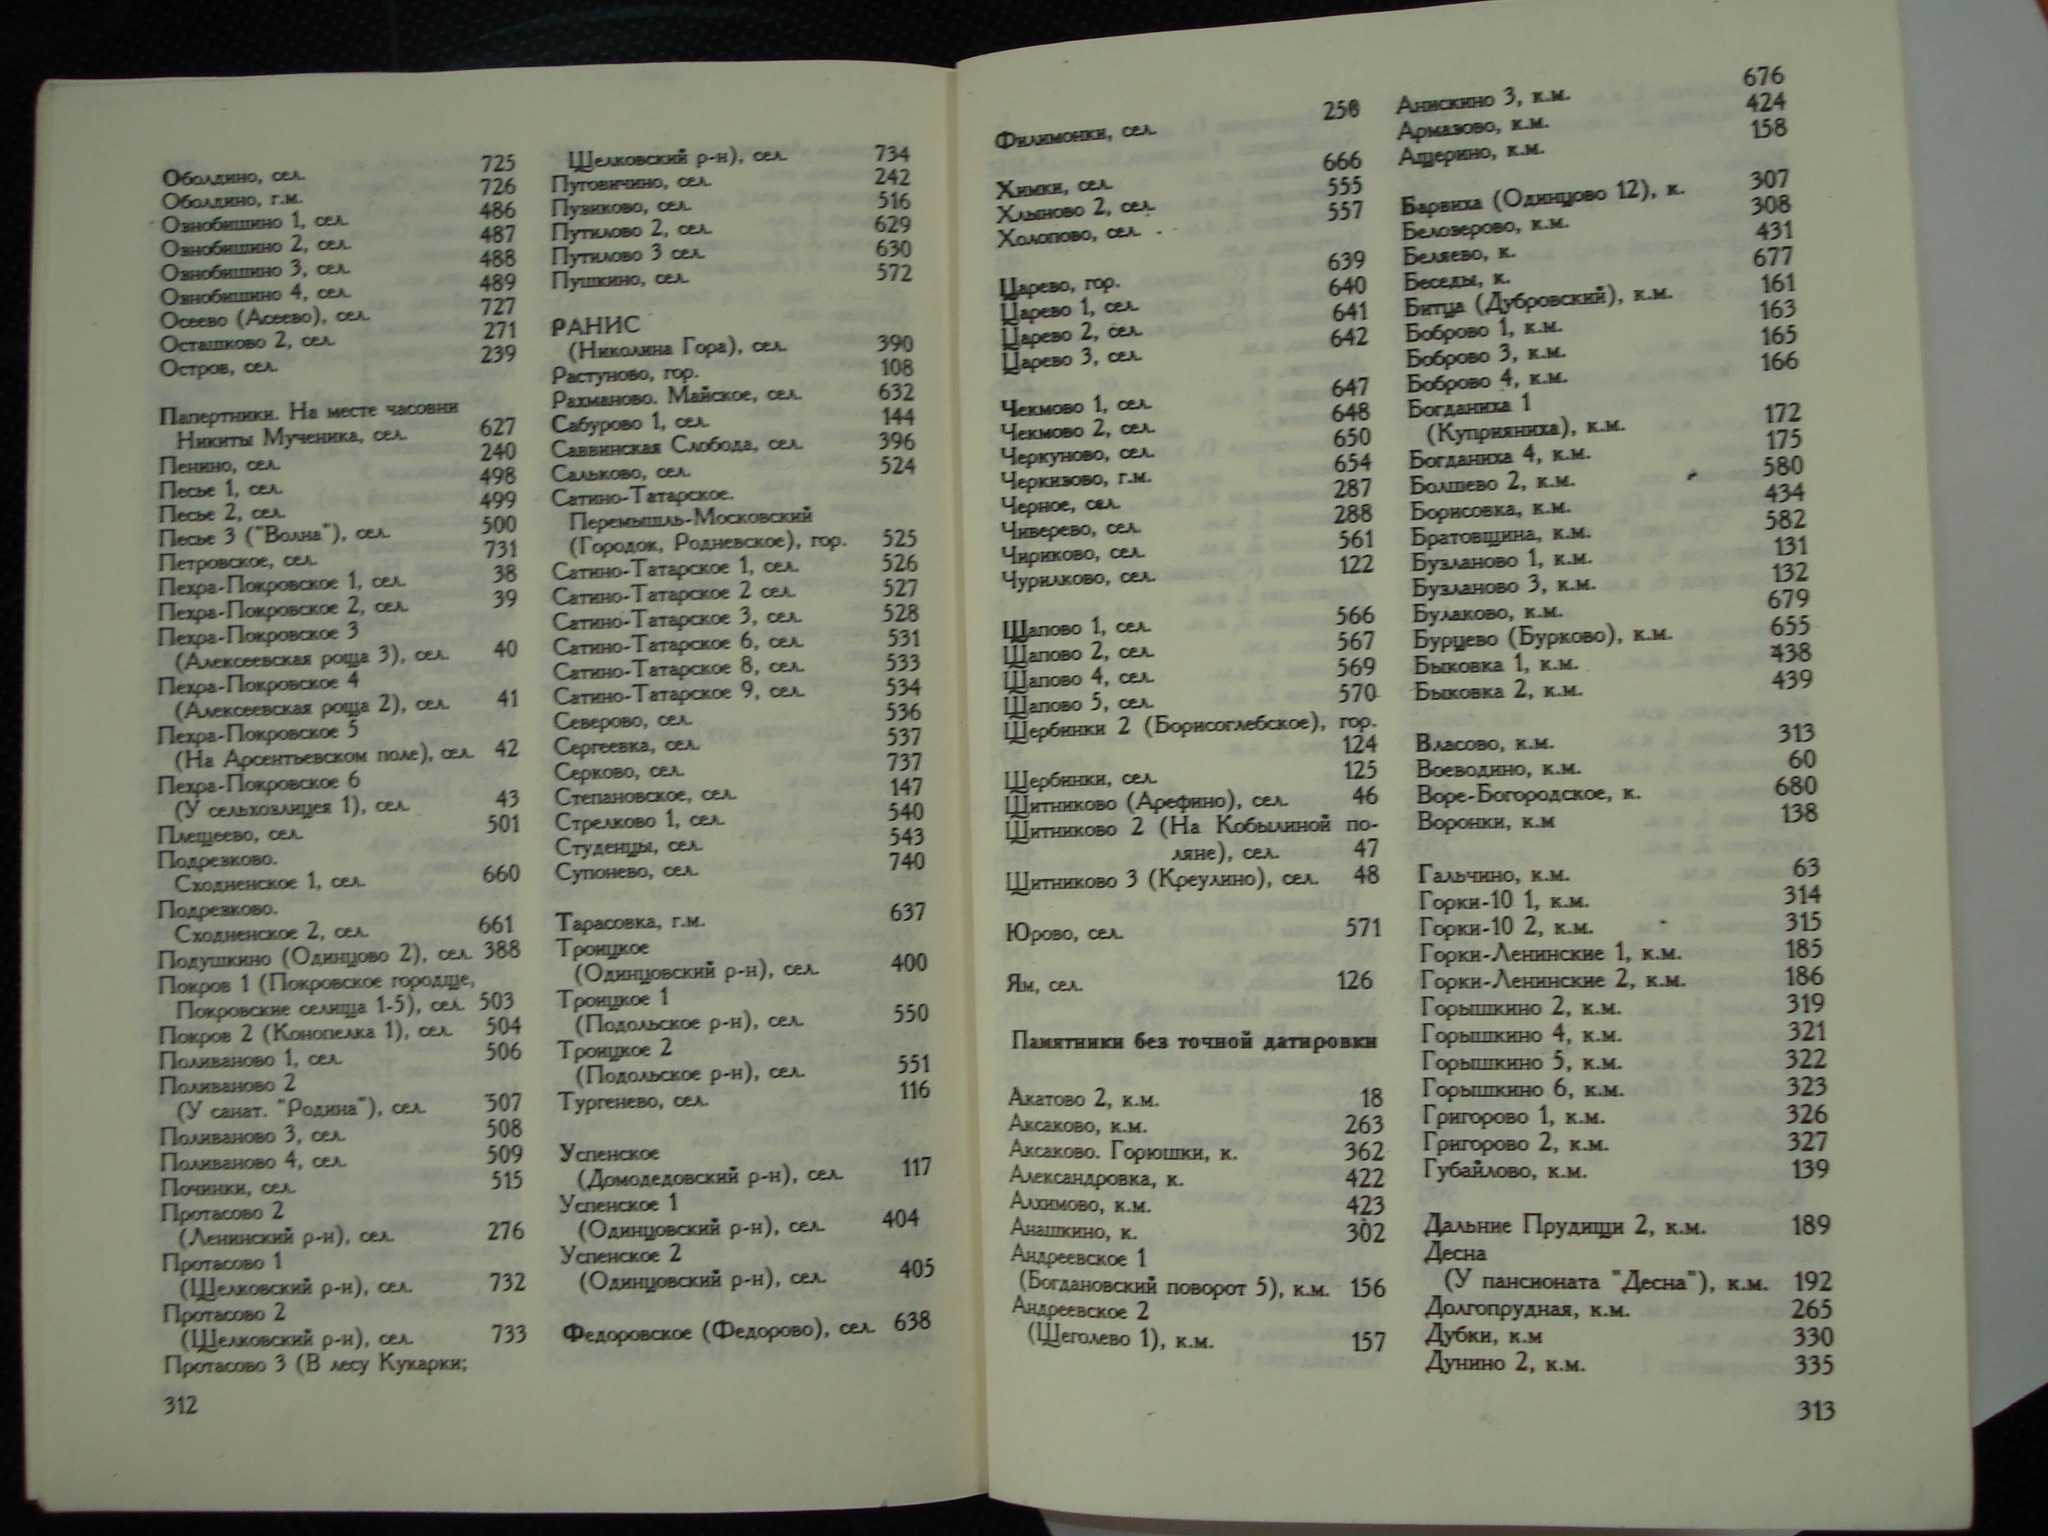 Оболдино, сел. 725
Оболдино, г.м. 726
Ознобишино 1, сел. 486
Ознобишино 2, сел. 487
Ознобишино 3, сел. 488
Ознобишино 4, сел. 489
Осеево (Асеево), сел. 727
Осташково 2, сел. 271
Остров, сел. 239
Папертники. На месте часовни
Никиты Мученика, сел. 627
Пенино, сел. 240
Песье 1, сел. 498
Песье 2, сел. 499
Песье 3 ("Волна"), сел. 500
Петровское, сел. 731
Пехра-Покровское 1, сел. 38
Пехра-Покровское 2, сел. 39
Пехра-Покровское 3
(Алексеевская роща 3), сел. 40
Пехра-Покровское 4
(Алексеевская роща 2), сел. 41
Пехра-Покровское 5
(На Арсентьевском поле), сел. 42
Пехра-Покровское 6
(У сельхозлицея 1), сел. 43
Плещеево, сел. 501
Подрезково.
Сходненское 1, сел. 660
Подрезково.
Сходненское 2, сел. 661
Подушкино (Одинцово 2), сел. 388
Покров 1 (Покровское городще,
Покровские селища 1-5), сел. 503
Покров 2 (Конопелка 1), сел. 504
Поливаново 1, сел. 506
Поливаново 2
(У санат. "Родина"), сел. 507
Поливаново 3, сел. 508
Поливаново 4, сел. 509
Починки, сел. 515
Протасово 2
(Ленинский р-н), сел. 276
Протасово 1
(Щелковский р-н), сел. 732
Протасово 2
(Щелковский р-н), сел. 733
Протасово 3 (В лесу Кукарки;
312
Щелковский р-н), сел. 734
Пуговичино, сел. 242
Пузиково, сел. 516
Путилово 2, сел. 629
Путилово 3 сел. 630
Пушкино, сел. 572
РАНИС
(Николина Гора), сел. 390
Растуново, гор. 108
Рахманово. Майское, сел. 632
Сабурово 1, сел. 144
Саввинская Слобода, сел. 396
Сальково, сел. 524
Сатино-Татарское.
Перемышль-Московский
(Городок, Родневское), гор. 525
Сатино-Татарское 1, сел. 526
Сатино-Татарское 2 сел. 527
Сатино-Татарское 3, сел. 528
Сатино-Татарское 6, сел. 531
Сатино-Татарское 8, сел. 533
Сатино-Татарское 9, сел. 534
Северово, сел. 536
Сергеевка, сел. 537
Серково, сел. 737
Степановское, сел. 147
Стрелково 1, сел. 540
Студенцы, сел. 543
Супонево, сел. 740
Тарасовка, г.м. 637
Троицкое
(Одинцовский р-н), сел. 400
Троицкое 1
(Подольское р-н), сел. 550
Троицкое 2
(Подольское р-н), сел. 551
Тургенево, сел. 116
Успенское
(Домодедовский р-н), сел. 117
Успенское 1
(Одинцовский р-н), сел. 404
Успенское 2
(Одинцовский р-н), сел. 405
Федоровское (Федорово), сел. 638
Филимонки, сел. 250
Химки, сел. 666
Хлыново 2, сел. 555
Холопово, сел. 557
Царево, гор. 639
Царево 1, сел. 640
Царево 2, сел. 641
Царево 3, сел. 642
Чекмово 1, сел. 647
Чекмово 2, сел. 648
Черкуново, сел. 650
Черкизово, г.м. 654
Черное, сел. 287
Чиверево, сел. 288
Чириково, сел. 561
Чурилково, сел. 122
Щапово 1, сел. 566
Щапово 2, сел. 567
Щапово 4, сел. 569
Щапово 5, сел. 570
Щербинки 2 (Борисоглебское), гор.
124
Щербинки, сел. 125
Щитниково (Арефино), сел. 46
Щитниково 2 (На Кобылиной по-
ляне), сел. 47
Щитниково 3 (Креулино), сел. 48
Юрово, сел. 571
Ям, сел. 126
Памятники без точной датировки
Акатово 2, к.м. 18
Аксаково, к.м. 263
Аксаково. Горюшки, к. 362
Александровка, к. 422
Алхимово, к.м. 423
Анашкино, к. 302
Андреевское 1
(Богдановский поворот 5), к.м. 156
Андреевское 2
(Щеголево 1), к.м. 157
Анискино 3, к.м. 676
Армазово, к.м. 424
Ащерино, к.м. 158
Барвиха (Одинцово 12), к. 307
Белозерово, к.м. 308
Беляево, к. 431
Беседы, к. 677
Битца (Дубровский), к.м. 161
Боброво 1, к.м. 163
Боброво 3, к.м. 165
Боброво 4, к.м. 166
Богданиха 1
(Куприяниха), к.м. 172
Богданиха 4, к.м. 175
Болшево 2, к.м. 580
Борисовка, к.м. 434
Братовщина, к.м. 582
Бузланово 1, к.м. 131
Бузланово 3, к.м. 132
Булаково, к.м. 679
Бурцево (Бурково), к.м. 655
Быковка 1, к.м. 438
Быковка 2, к.м. 439
Власово, к.м. 313
Воеводино, к.м. 60
Воре-Богородское, к. 680
Воронки, к.м 138
Гальчино, к.м. 63
Горки-10 1, к.м. 314
Горки-10 2, к.м. 315
Горки-Ленинские 1, к.м. 185
Горки-Ленинские 2, к.м. 186
Горышкино 2, к.м. 319
Горышкино 4, к.м. 321
Горышкино 5, к.м. 322
Горышкино 6, к.м. 323
Григорово 1, к.м. 326
Григорово 2, к.м. 327
Губайлово, к.м. 139
Дальние Прудищи 2, к.м. 189
Десна
(У пансионата "Десна"), к.м. 192
Долгопрудная, к.м. 265
Дубки, к.м 330
Дунино 2, к.м. 335
313